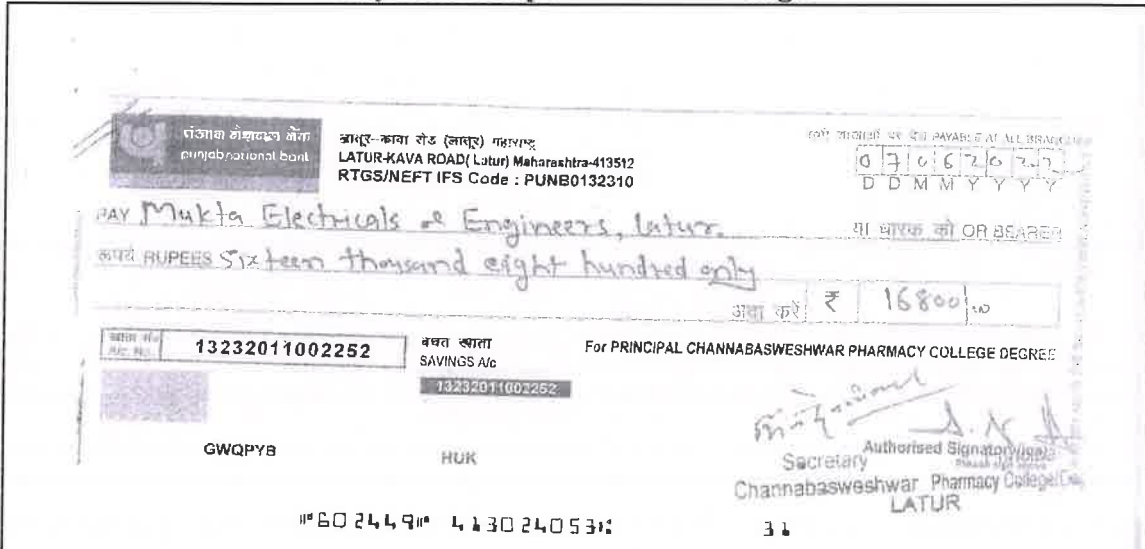 पंजाब नैशनल बैंक
punjab national bank
लातूर-कावा रोड (लातूर) महाराष्ट्र
LATUR-KAVA ROAD( Latur) Maharashtra-413512
RTGS/NEFT IFS Code : PUNB0132310
PAYABLE AT ALL BRANCHES
0 7 0 6 2 0 2 2
D D M M Y Y Y Y
PAY Mukta Electricals & Engineers, latur.
या धारक को OR BEARER
रूपये RUPEES Sixteen thousand eight hundred only
अदा करें ₹ 16800/00
13232011002252
बचत खाता
SAVINGS A/c
13232011002252
For PRINCIPAL CHANNABASWESHWAR PHARMACY COLLEGE DEGREE
GWQPYB
HUK
Authorised Signatory
Secretary
Channabasweshwar Pharmacy College
LATUR
⑈602449⑈ 413024053⑆ 31